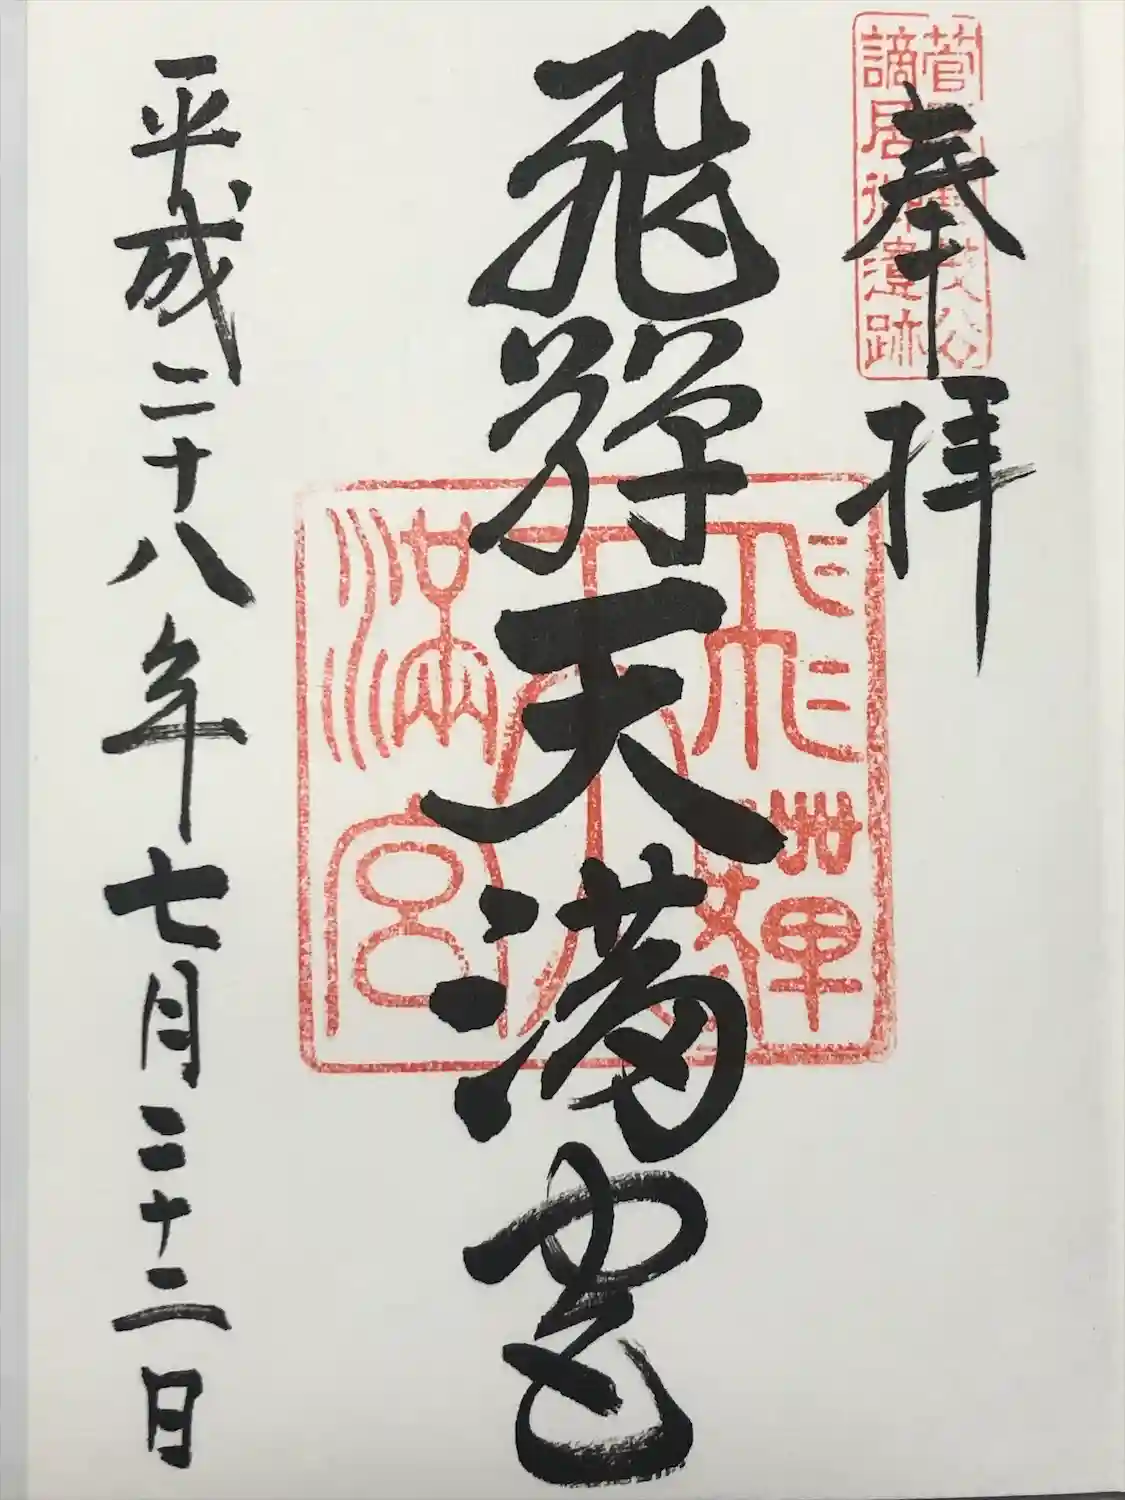 菅原兼茂公
謫居御遺跡
奉拝
飛騨天満宮
飛騨天満宮
平成二十八年七月二十二日